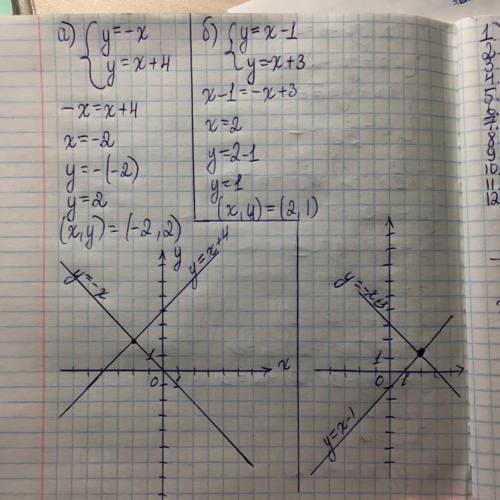 а) { y=-x
y=x+4
-x=x+4
x=-2
y=-(-2)
y=2
(x,y)=(-2,2)
б) { y=x-1
y=-x+3
x-1=-x+3
x=2
y=2-1
y=1
(x,y)=(2,1)
y
y=x+4
y=-x
1
x
0
1
y=-x+3
1
0
1
y=x-1
1
10
11
12